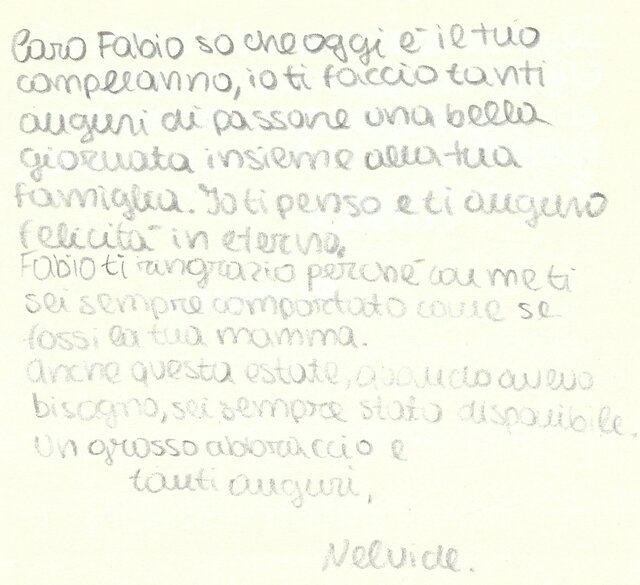 Caro Fabio so che oggi è il tuo
compleanno, io ti faccio tanti
auguri di passare una bella
giornata insieme alla tua
famiglia. Io ti penso e ti auguro
felicità in eterno.
Fabio ti ringrazio perchè con me ti
sei sempre comportato come se
fossi la tua mamma.
Anche questa estate, quando avevo
bisogno, sei sempre stato disponibile.
Un grosso abbraccio e
tanti auguri,
Nelvide.